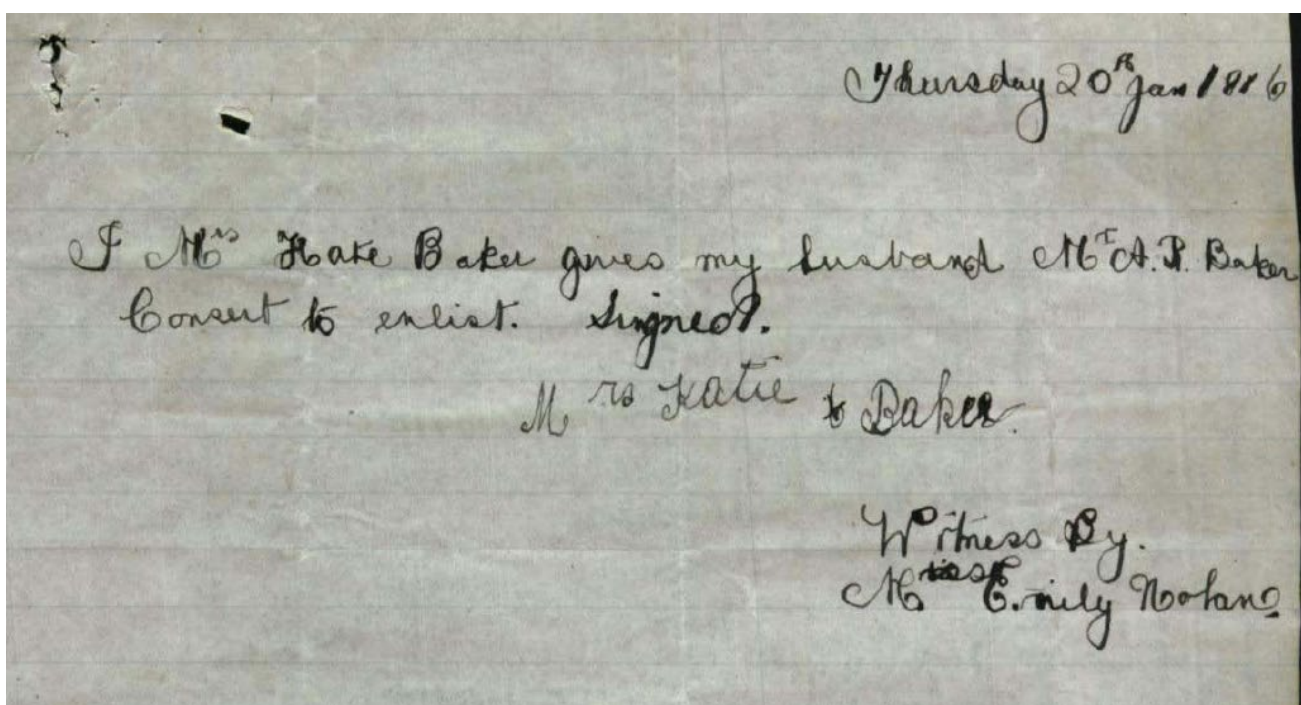 Thursday 20th Jan 1916
I Mrs Kate Baker gives my husband Mr A. P. Baker
Consent to enlist. Signed.
Mrs Katie Baker.
Witness By.
Miss Emily Nolan